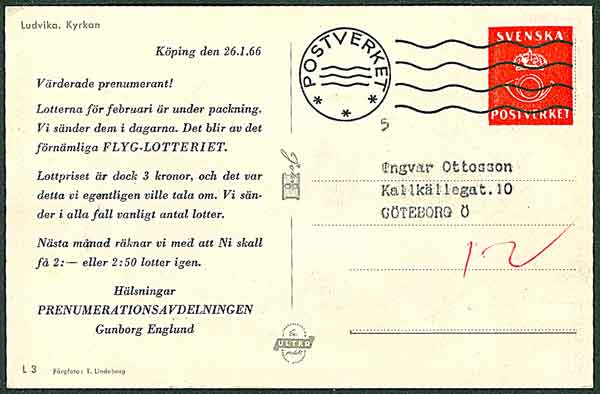 Ludvika. Kyrkan
Köping den 26.1.66
Värderade prenumerant!
Lotterna för februari är under packning.
Vi sänder dem i dagarna. Det blir av det
förnämliga FLYG-LOTTERIET.
Lottpriset är dock 3 kronor, och det var
detta vi egentligen ville tala om. Vi sän-
der i alla fall vanligt antal lotter.
Nästa månad räknar vi med att Ni skall
få 2:— eller 2:50 lotter igen.
Hälsningar
PRENUMERATIONSAVDELNINGEN
Gunborg Englund
L 3
Färgfoto: E. Lindeborg
ULTRA
POSTVERKET
5
SVENSKA
POSTVERKET
Ingvar Ottosson
Kallkällegat.10
GÖTEBORG Ö
12